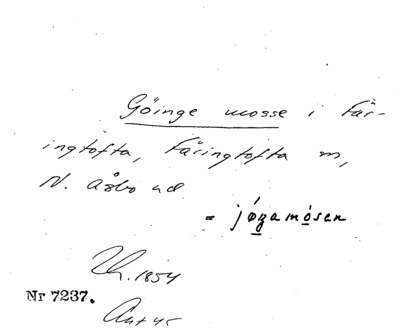 Göinge mosse i Fär-
ingtofta, Färingtofta m,
N. Åsbo hd
= jøŋamósen
Uh. 1854
Nr 7237.
Ant 45